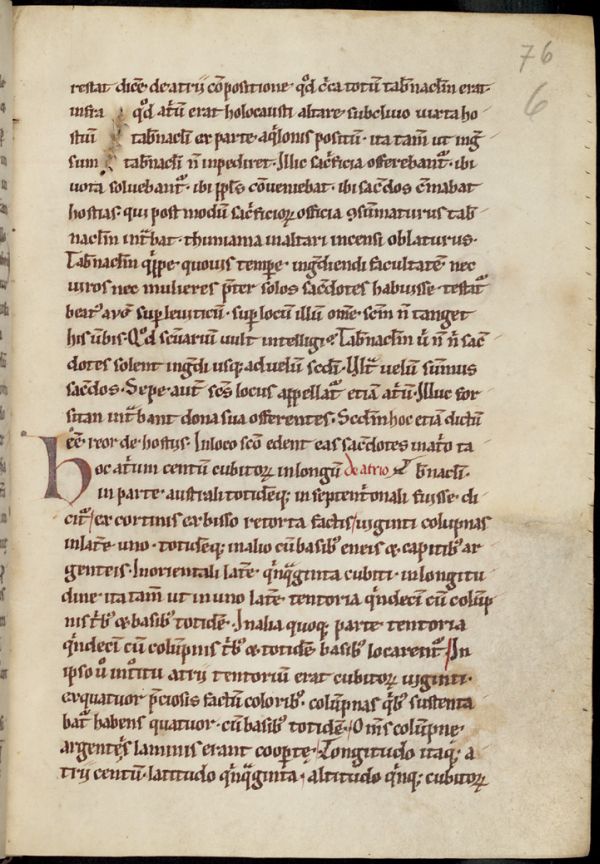 76
6
restat dicē de atrij cōpositione qd̄ c̄ca totū tab̄nacl̄m erat
infra qd̄ at̄ū erat holocausti altare sub cliuo iuxta ho
stiū tab̄nacl̄i ex parte aq̄lonis positū · ita tam̄ ut inḡ
sum tab̄nacl̄i n̄ inpediret · Illic sac̄ficia offerebant᷑ · ibi
uota soluebant᷑ · ibi ppl̄s cōueniebat · ibi sac̄dos c̄mabat
hostias · qui post modū sac̄ficioꝝ officia ꝯsūmaturus tab̄
nacl̄m int̄bat · thimiama in altari incensi oblaturus ·
Tab̄nacl̄m q̄ppe quouis tempr̄e · inḡdiendi facultatē nec
uiros nec mulieres p̄ter solos sac̄dotes habuisse · testat᷑
beat᷒ aug᷒ sup leuiticū · sup locū illū om̄e sc̄m n̄ tanget
his ūbis · Qd̄ sc̄uarium uult intelligi · Tab̄nacl̄m ū n̄ n̄ sac̄
dotes solent inḡdi usq; ad uelū sc̄di · Ult̄ uelū sūmus
sac̄dos · Sepe aut̄ sc̄s locus appellat᷑ etiā at̄ū · Illuc for
sitan int̄bant dona sua offerentes · Sc̄dm hoc etiā dictū
eē reor de hostijs · In loco sc̄o edent eas sac̄dotes in at̄o ta
Hoc at̄ium centū cubitoꝝ in longū de atrio b̄nacl̄i ·
in parte australi totidēq; in septent̄onali fuisse · di
cit᷑ ex cortinis ex bisso retorta factis uiginti colupnas
in lat̄e uno · totidēq; in alio cū basib᷒ eneis & capitib᷒ ar
genteis · In orientali lat̄e q̄nq̄ginta cubiti · in longitu
dine · ita tam̄ ut in uno lat̄e tentoria q̄ndecī cū colūp
nis t̄b᷒ & basib᷒ totidē · In alia quoq; parte tentoria
q̄ndecī cū colūpnis t̄b᷒ & totidē basib᷒ locarent᷑ In
ipso ū int̄oitu atrij tentoriū erat cubitoꝝ uiginti ·
ex quatuor p̄ciosis factū colorib᷒ · colūpnas q̄b᷒ sustenta
bat᷑ habens quatuor · cū basib᷒ totidē · Om̄s colūpnę
argentęis laminis erant coopertę · Longitudo itaq; a
trij centū · latitudo q̄nq̄ginta · altitudo q̄nq; cubitoꝝ